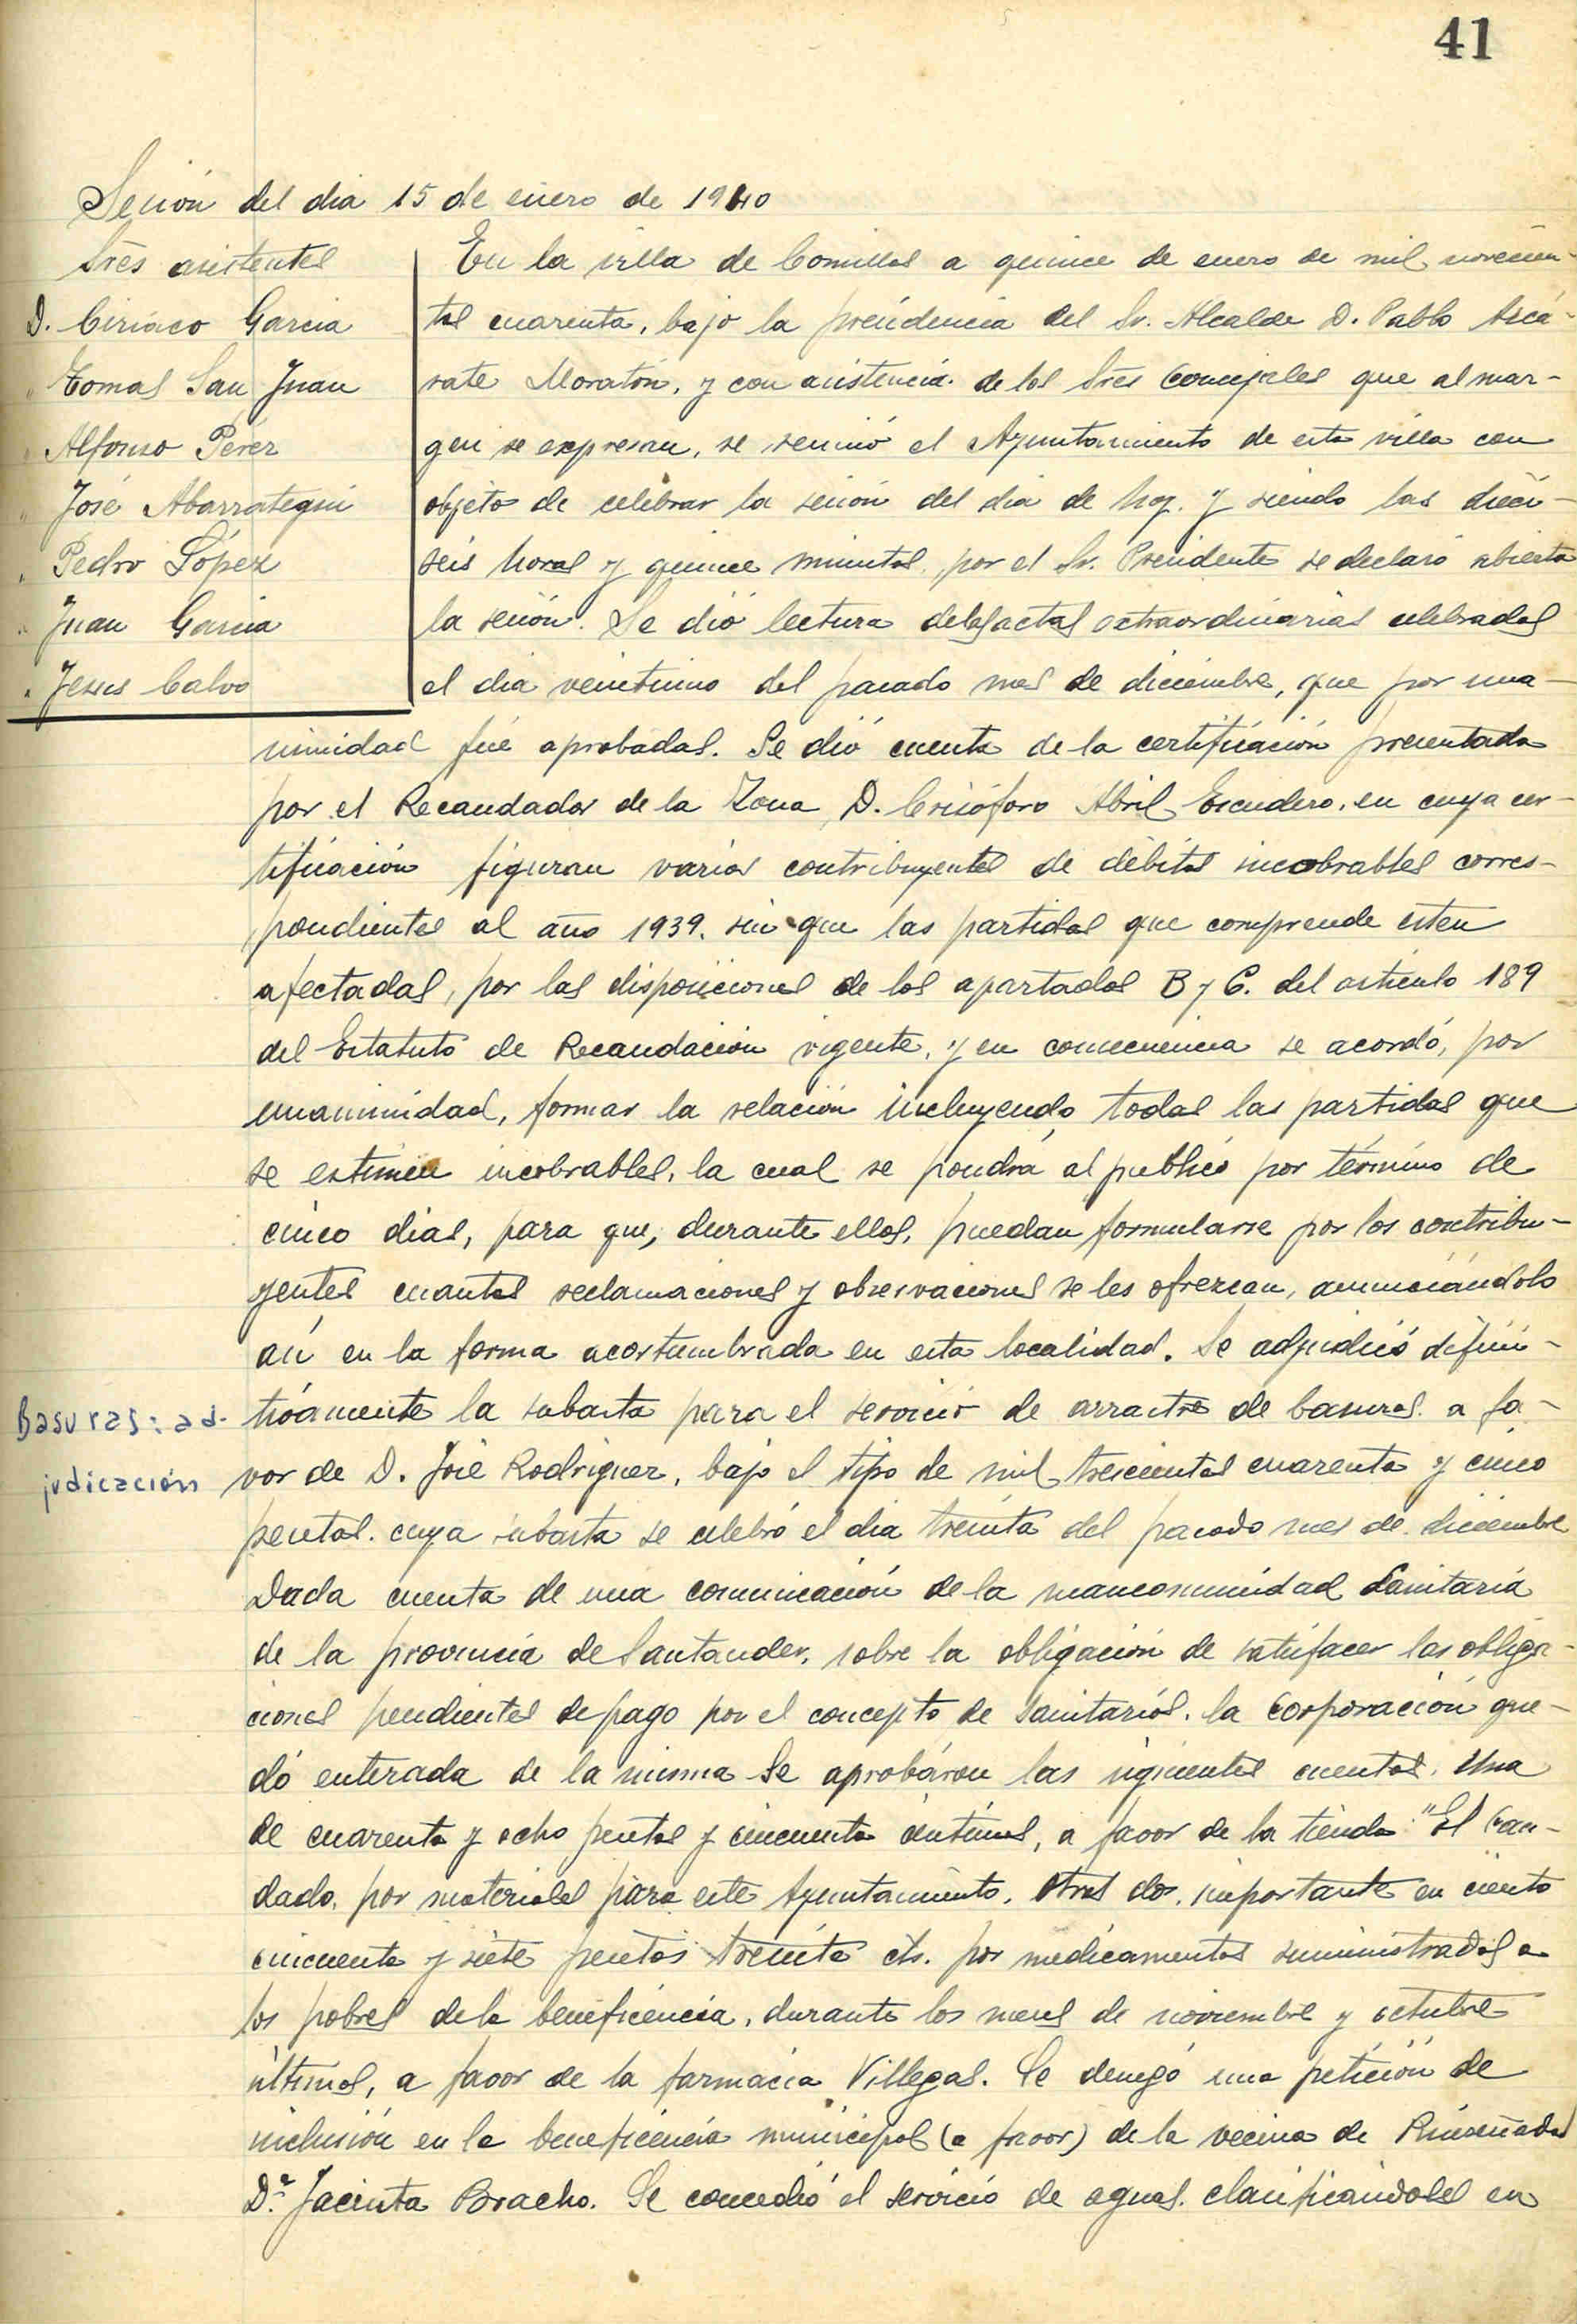 41
Sesión del dia 15 de enero de 1940
Sres asistentes
D. Ciriaco Garcia
" Tomas San Juan
" Alfonso Pérez
" José Abarrategui
" Pedro López
" Juan Garcia
" Jesus Calvo
En la villa de Comillas a quince de enero de mil novecien-
tos cuarenta, bajo la presidencia del Sr. Alcalde D. Pablo Azcá-
rate Moratón, y con asistencia de los Sres Concejales que al mar-
gen se expresan, se reunió el Ayuntamiento de esta villa con
objeto de celebrar la sesión del dia de hoy. y siendo las dieci-
seis horas y quince minutos, por el Sr. Presidente se declaró abierta
la sesión. Se dió lectura de las actas extraordinarias celebradas
el dia veintiuno del pasado mes de diciembre, que por una-
nimidad fué aprobadas. Se dió cuenta de la certificación presentada
por el Recaudador de la Zona, D. Crisóforo Abril Escudero, en cuya cer-
tificación figuran varios contribuyentes de débitos incobrables corres-
pondientes al año 1939. sin que las partidas que comprende esten
afectadas, por las disposiciones de los apartados B y C. del artículo 189
del Estatuto de Recaudación vigente, y en consecuencia se acordó, por
unanimidad, formar la relación incluyendo todas las partidas que
se estimen incobrables, la cual se pondrá al publico por término de
cinco dias, para que, durante ellos, puedan formularse por los contribu-
yentes cuantas reclamaciones y observaciones se les ofrezcan, anunciándolo
asi en la forma acostumbrada en esta localidad. Se adjudicó difini-
Basuras: ad-
judicación
tivamente la subasta para el servicio de arrastre de basuras. a fa-
vor de D. José Rodriguez, bajo el tipo de mil trescientas cuarenta y cinco
pesetas. cuya subasta se celebró el dia treinta del pasado mes de diciembre
Dada cuenta de una comunicación de la mancomunidad Sanitaria
de la provincia de Santander, sobre la obligación de satisfacer las obliga-
ciones pendientes de pago por el concepto de Sanitarios. la Corporación que-
dó enterada de la misma Se aprobáron las siguientes cuentas. Una
de cuarenta y ocho pesetas y cincuenta céntimos, a favor de la tienda "El Can-
dado. por materiales para este Ayuntamiento. Otras dos, importante en ciento
cincuenta y siete pesetas treinta cts. por medicamentos suministrados a
los pobres de la beneficencia, durante los meses de noviembre y octubre
últimos, a favor de la farmacia Villegas. Se denegó una petición de
inclusión en la beneficencia municipal (a favor) de la vecina de Ruiseñada
Dª. Jacinta Bracho. Se concedió el servicio de aguas. clasificandoles en